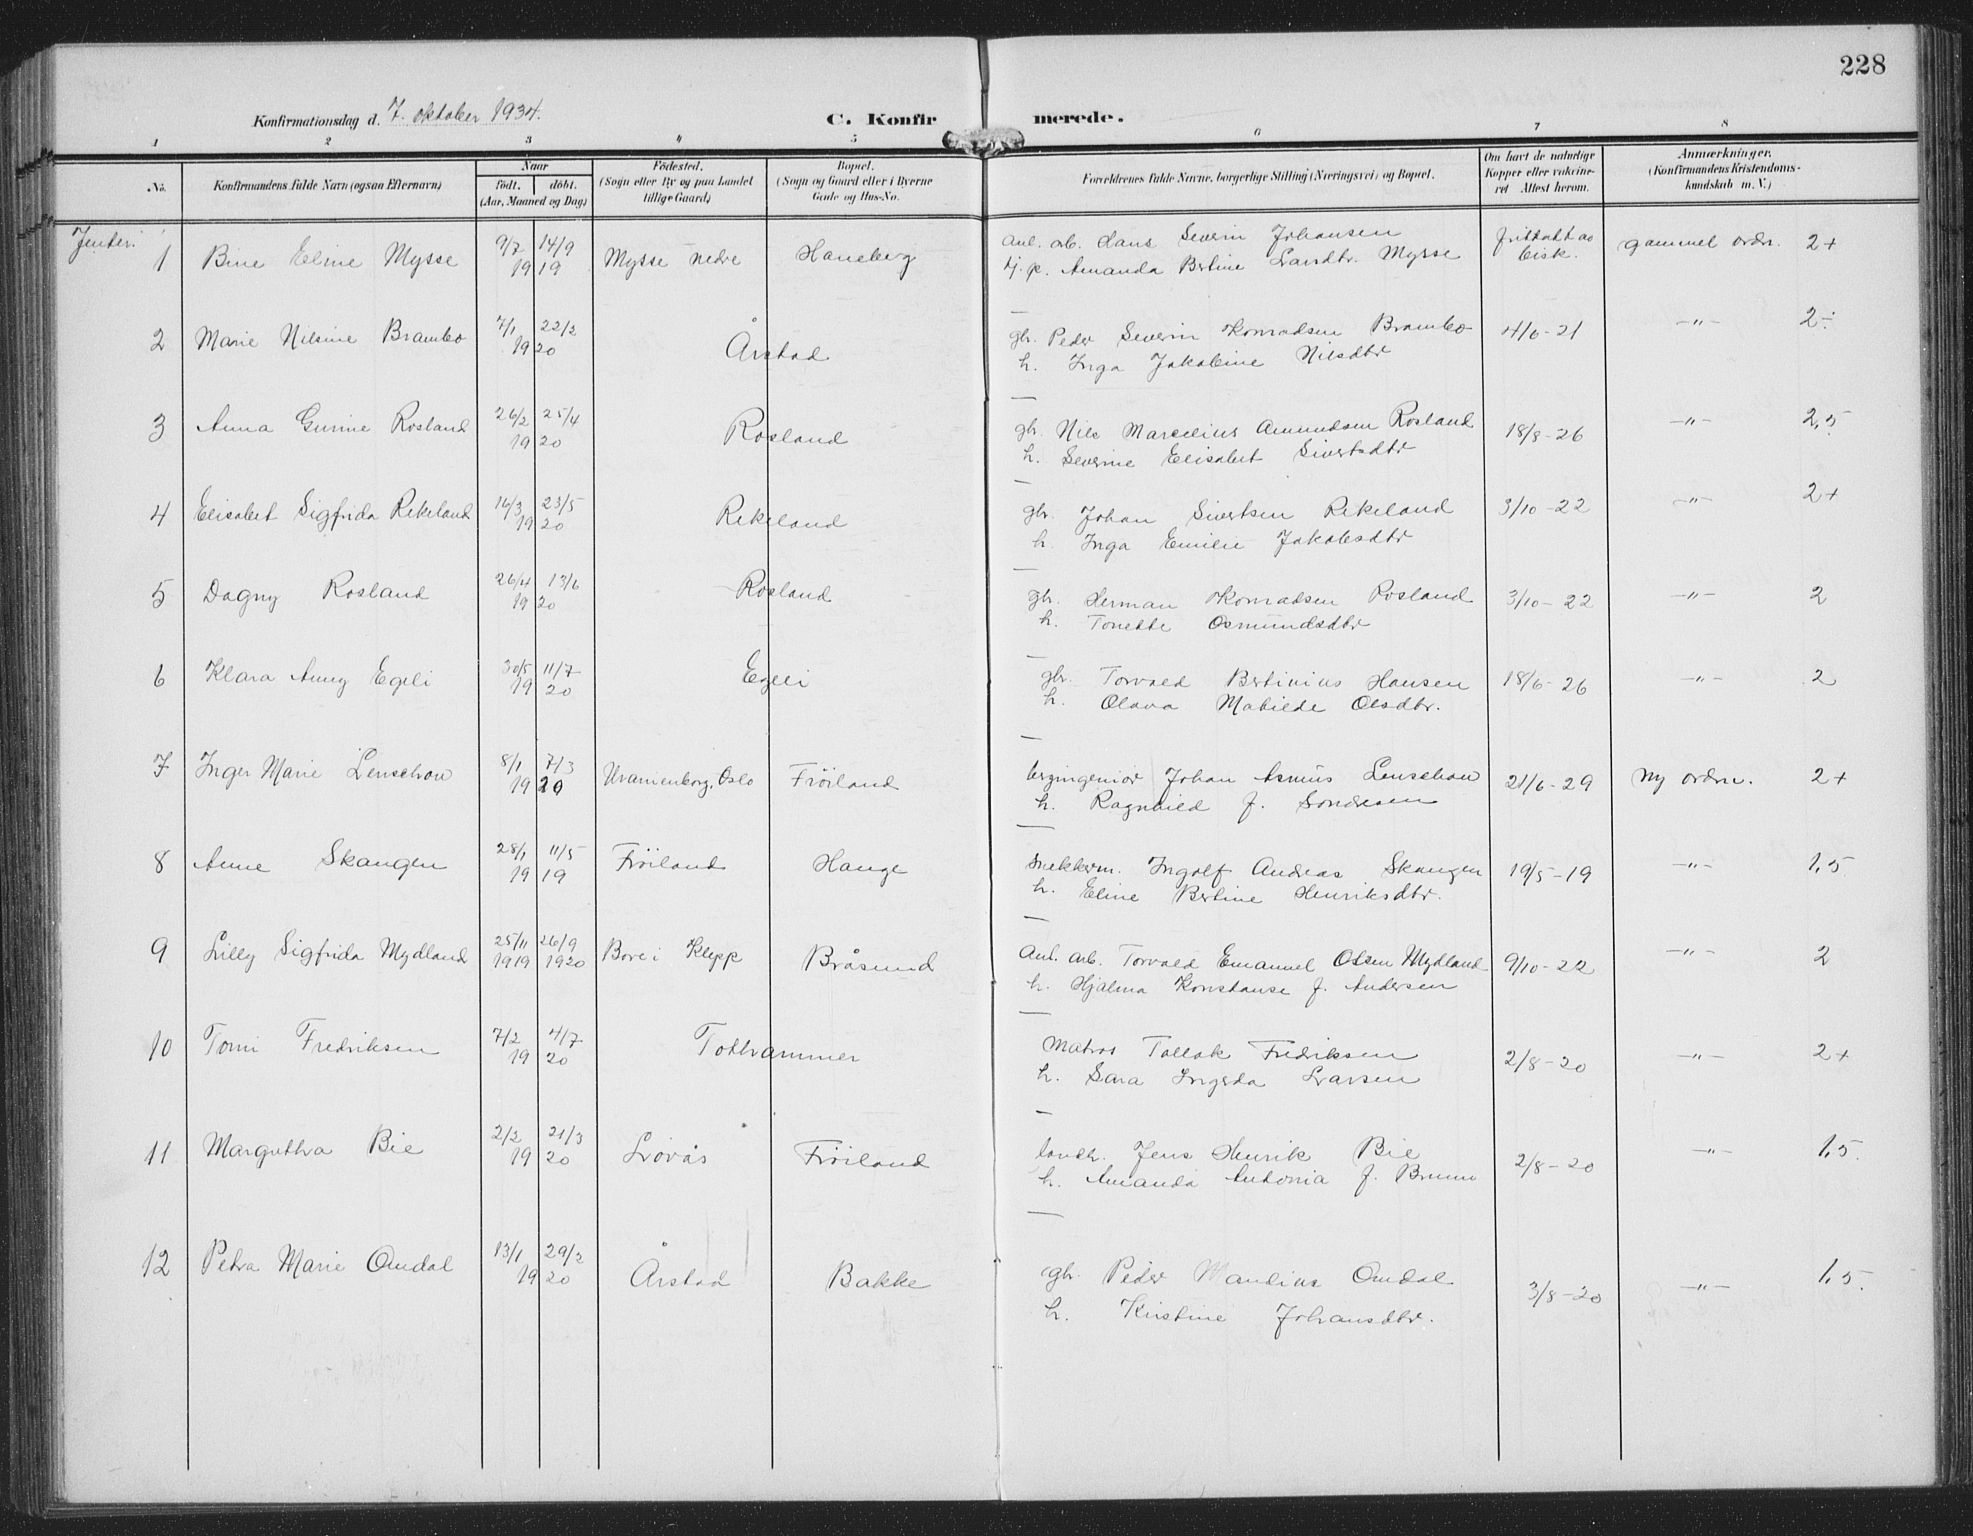 228
Konfirmationsdag d. 7. oktober 1934.
C. Konfirmerede.
1 2 3 4 5 6 7 8
No.
Konfirmandens fulde Navn (ogsaa Efternavn)
Naar
födt. döbt.
(Aar, Maaned og Dag)
Födested.
(Sogn eller By og paa Landet
tillige Gaard)
Bopæl.
(Sogn og Gaard eller i Byerne
Gade og Hus-No.
Forældrenes fulde Navne, borgerlige Stilling (Næringsvei) og Bopæl.
Om havt de naturlige
Kopper eller vakcine-
ret Attest herom.
Anmærkninger,
(Konfirmandens Kristendoms-
kundskab m. V.)
Jenter:
1 Bine Eline Mysse 9/7 14/9 1919 Mysse nedre Haneberg
Anl. arb. Hans Severin Johansen
tj. p. Amanda Bertine Larsdtr. Mysse
fritatt av
bisk.
gammel ordn. 2+
2 Marie Nilsine Brambo 7/1 22/2 1920 Årstad
gbr. Peder Severin Konradsen Brambo
h. Inga Jakobine Nilsdtr
4/6-21 -"- 2÷
3 Anna Gurine Rosland 26/2 25/4 1920 Rosland
gbr. Nils Marcelius Amundsen Rosland
h. Severine Elisabet Sivertsdtr
18/8-26 -"- 2,5
4 Elisabet Sigfrida Rekeland 16/3 23/5 1920 Rekeland
gbr. Johan Sivertsen Rekeland
h. Inga Emilie Jakobsdtr
3/10-22 -"- 2+
5 Dagny Rosland 26/4 13/6 1920 Rosland
gbr. Herman Konradsen Rosland
h. Tonette Osmundsdtr
3/10-22 -"- 2
6 Klara Anny Egeli 30/5 11/7 1920 Egeli
gbr. Torvald Bertinius Hansen
h. Olava Matilde Olsdtr.
18/6-26 -"- 2
7 Inger Marie Lenschow 8/1 7/3 1920 Uranienborg, Oslo Fröiland
bergingeniör Johan Asmus Lenschow
h. Ragnhild f. Sondresen
21/6-29 ny ordn. 2+
8 Anne Skangen 28/1 11/5 1919 Fröiland Hauge
snekkerm. Ingolf Andreas Skangen
h. Eline Bertine Henriksdtr.
19/5-19 -"- 1,5
9 Lilly Sigfrida Mydland 25/11 1919 26/9 1920 Bore i Klepp Bråsund
Anl. arb. Torvald Emanuel Olsen Mydland
h. Hjalma Konstanse f. Andersen
9/10-22 -"- 2
10 Toni Fredriksen 7/2 4/7 1920 Tothammer
Matros Tollak Fredriksen
h. Sara Ingerda Larsen
2/8-20 -"- 2+
11 Margrethra Bie 2/2 21/3 1920 Lövås Fröiland
landh. Jens Henrik Bie
h. Amanda Antonia f. Bruun
2/8-20 -"- 1,5.
12 Petra Marie Omdal 13/1 29/2 1920 Årstad Bakke
gbr. Peder Maulius Omdal
h. Kristine Johansdtr.
3/8-20 -"- 1,5.